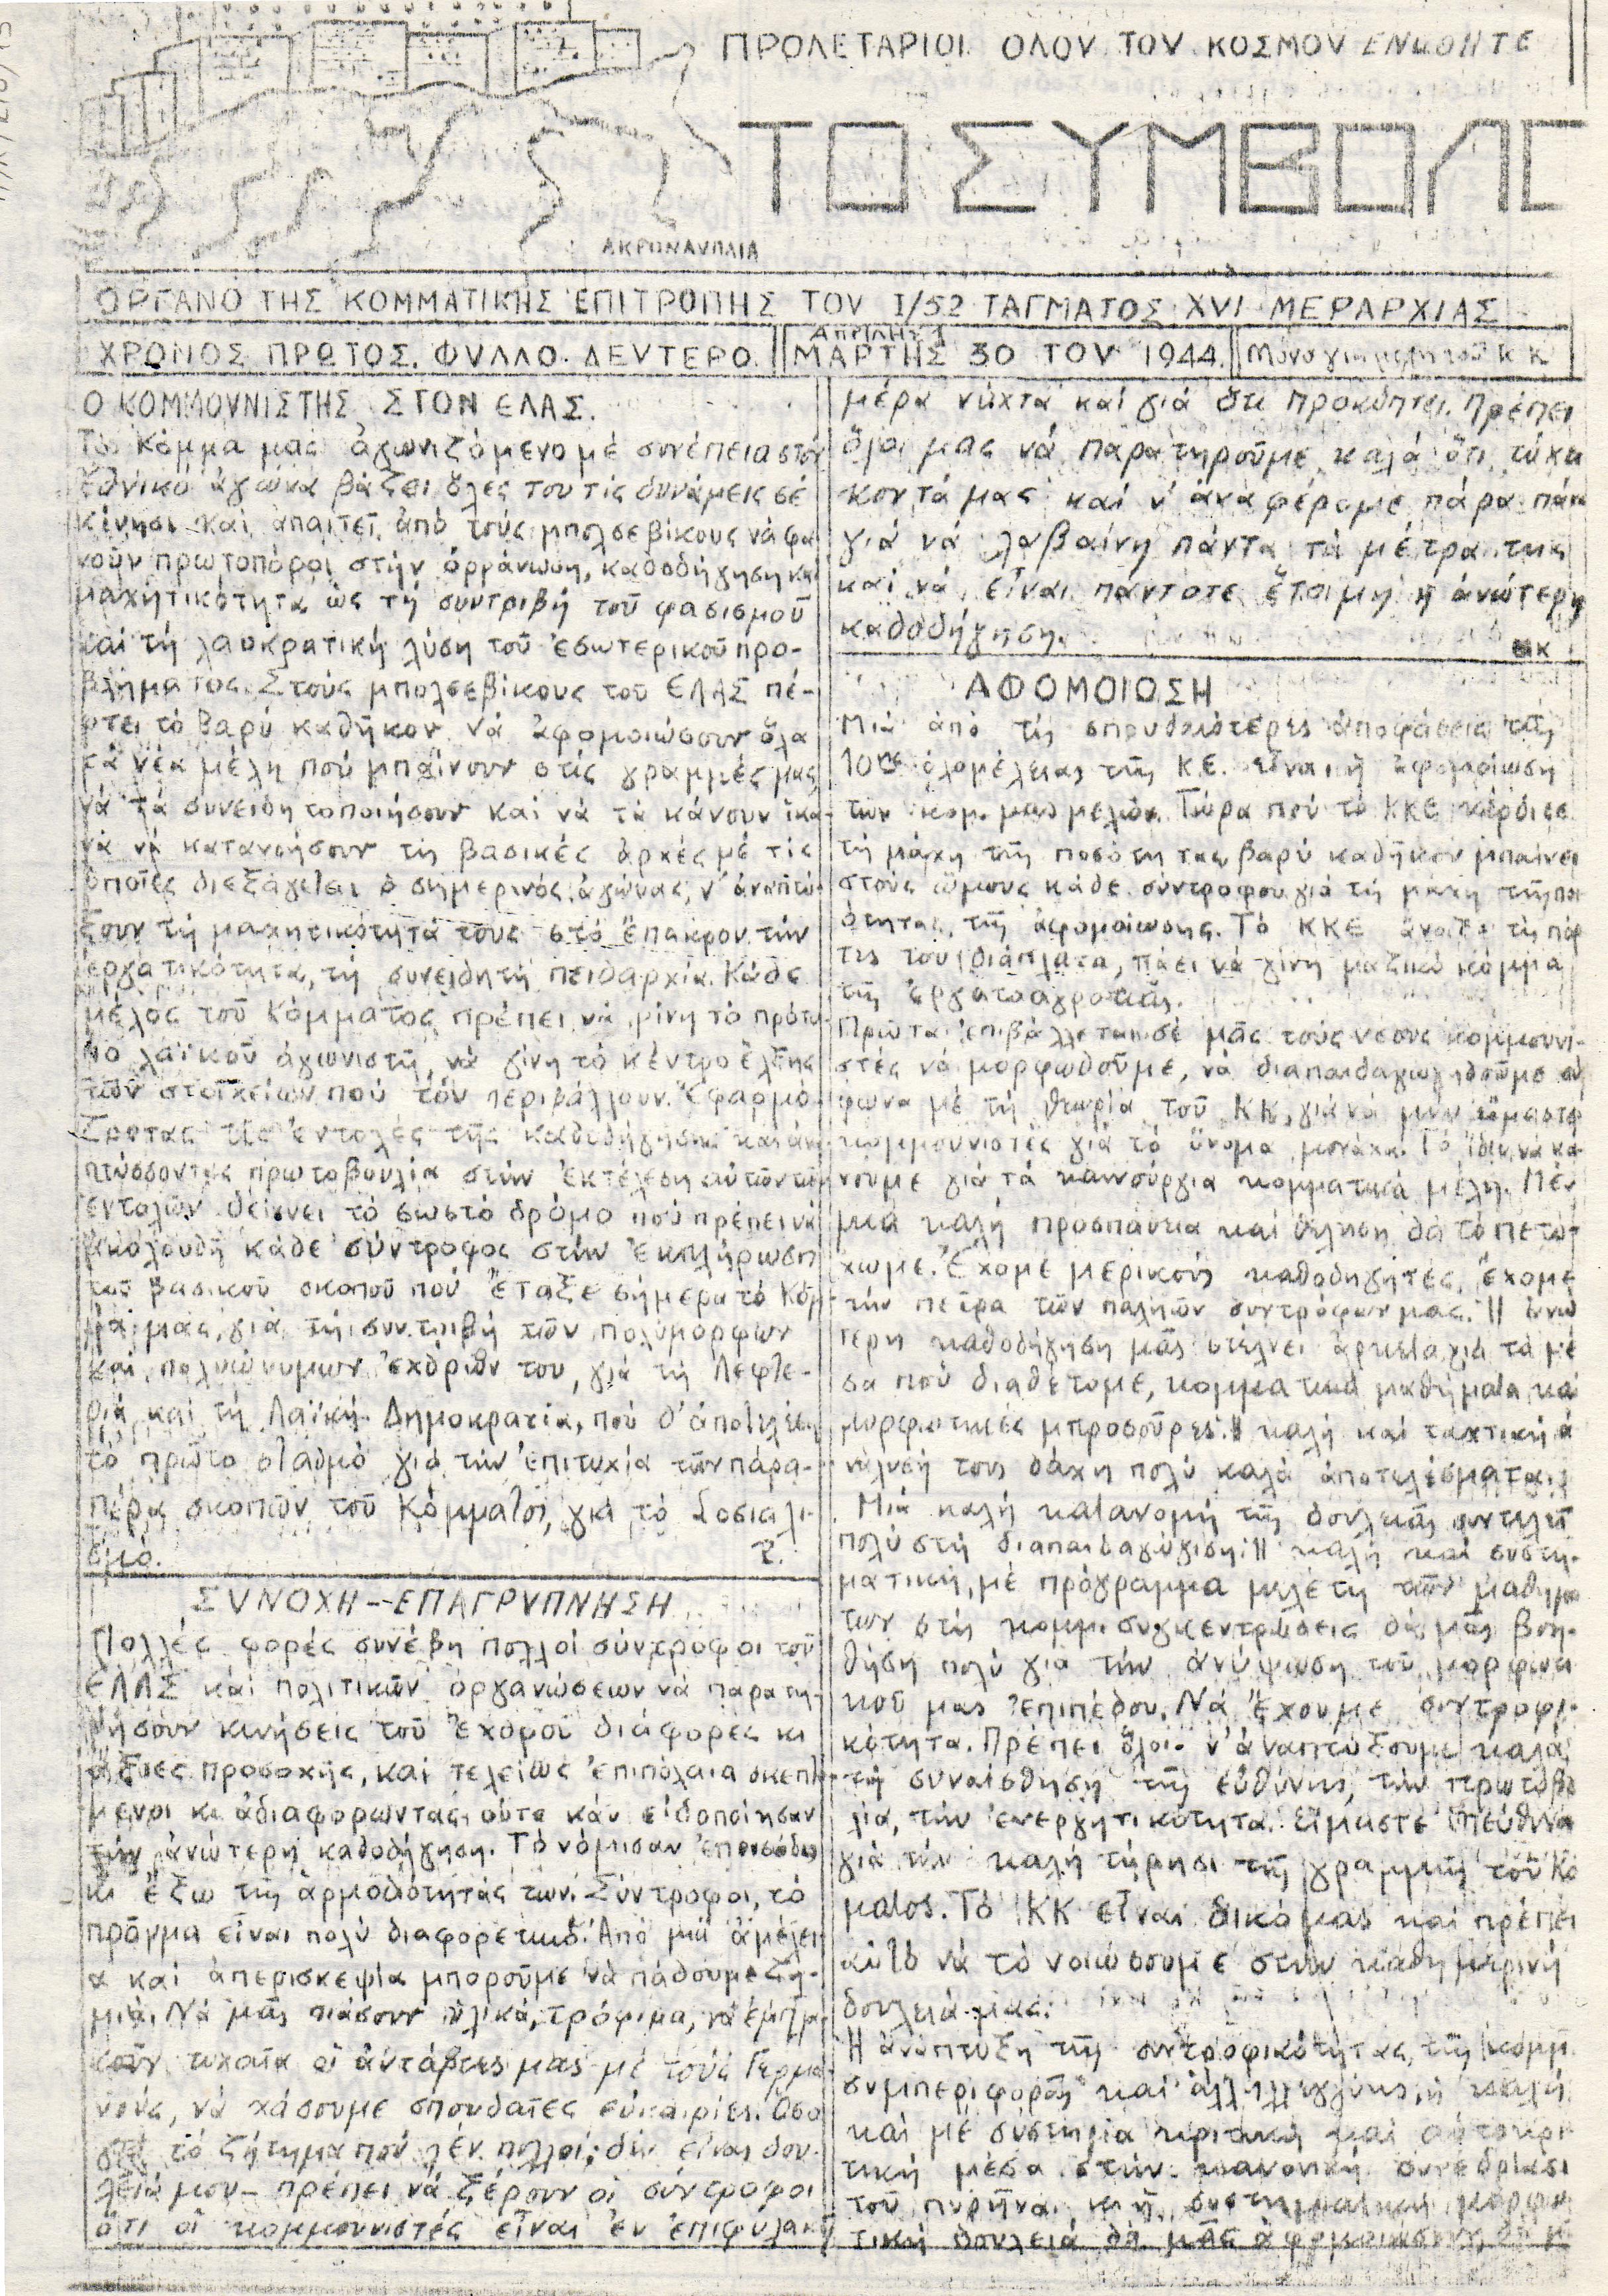 ΠΡΟΛΕΤΑΡΙΟΙ ΟΛΟΥ ΤΟΥ ΚΟΣΜΟΥ ΕΝΩΘΗΤΕ
ΤΟ ΣΥΜΒΟΛΟ
ΑΚΡΟΝΑΥΠΛΙΑ
ΟΡΓΑΝΟ ΤΗΣ ΚΟΜΜΑΤΙΚΗΣ ΕΠΙΤΡΟΠΗΣ ΤΟΥ Ι/52 ΤΑΓΜΑΤΟΣ XVI ΜΕΡΑΡΧΙΑΣ
ΧΡΟΝΟΣ ΠΡΩΤΟΣ. ΦΥΛΛΟ. ΔΕΥΤΕΡΟ.
ΑΠΡΙΛΗΣ 1
ΜΑΡΤΗΣ 30 ΤΟΥ 1944.
Μόνο για μέλη του Κ Κ
Ο ΚΟΜΜΟΥΝΙΣΤΗΣ ΣΤΟΝ ΕΛΑΣ.
Τό Κόμμα μας ἀγωνιζόμενο μέ συνέπεια στόν
ἐθνικό ἀγώνα βάζει ὅλες του τίς δυνάμεις σέ
κίνησι καί ἀπαιτεῖ ἀπό τούς μπολσεβίκους νά φα
νοῦν πρωτοπόροι στήν ὀργάνωση, καθοδήγηση και
μαχητικότητα ὡς τή συντριβή τοῦ φασισμοῦ
καί τή λαοκρατική λύση τοῦ ἐσωτερικοῦ προ-
βλήματος. Στούς μπολσεβίκους τοῦ ΕΛΑΣ πέ-
φτει τό βαρύ καθῆκον νά ἀφομοιώσουν ὅλα
τά νέα μέλη πού μπαίνουν στίς γραμμές μας,
νά τά συνειδητοποιήσουν καί νά τά κάνουν ἱκα-
νά νά κατανοήσουν τίς βασικές ἀρχές μέ τίς
ὁποῖες διεξάγεται ὁ σημερινός ἀγώνας, ν' ἀναπτύ-
ξουν τή μαχητικότητά τους στό ἔπακρον τήν
ἐργατικότητα, τή συνειδητή πειθαρχία. Κάθε
μέλος τοῦ Κόμματος πρέπει νά γίνη τό πρότυ-
πο λαϊκοῦ ἀγωνιστῆ, νά γίνη τό κέντρο ἕλξης
τῶν στοιχείων πού τόν περιβάλλουν. Ἐφαρμό-
ζοντας τίς ἐντολές τῆς καθοδήγησης και ἀνα
πτύσσοντας πρωτοβουλία στήν ἐκτέλεση αὐτῶν τῶν
ἐντολῶν δείχνει τό σωστό δρόμο πού πρέπει νά
ἀκολουθῆ κάθε σύντροφος στήν ἐκπλήρωση
τοῦ βασικοῦ σκοποῦ πού ἔταξε σήμερα τό Κόμ-
μα μας, γιά τή συντριβή τῶν πολύμορφων
καί πολυώνυμων ἐχθρῶν του, γιά τή Λεφτε-
ριά καί τή Λαϊκή Δημοκρατία, πού θ' ἀποτελέσει
τό πρῶτο σταθμό γιά τήν ἐπιτυχία τῶν πάρα-
πέρα σκοπῶν τοῦ Κόμματος, γιά τό Σοσιαλι-
σμό.
ΣΥΝΟΧΗ--ΕΠΑΓΡΥΠΝΗΣΗ
Πολλές φορές συνέβη πολλοί σύντροφοι τοῦ
ΕΛΑΣ καί πολιτικῶν ὀργανώσεων νά παρατη-
ρήσουν κινήσεις τοῦ ἐχθροῦ διάφορες κι
ἄξιες προσοχῆς, καί τελείως ἐπιπόλαια σκεπτό
μενοι κι ἀδιαφορώντας οὔτε κάν εἰδοποίησαν
τήν ἀνώτερη καθοδήγηση. Τό νόμισαν ἐπεισόδιο
κι ἔξω τῆς ἁρμοδιότητάς των. Σύντροφοι, τό
πρᾶγμα εἶναι πολύ διαφορετικό. Ἀπό μιά ἀμέλει
α καί ἀπερισκεψία μποροῦμε νά πάθουμε ζη-
μιά. Νά μᾶς πιάσουν ὑλικά, τρόφιμα, νά ἐμπλα
κοῦν τυχαῖα οἱ ἀντάρτες μας μέ τούς Γερμα-
νούς, νά χάσουμε σπουδαῖες εὐκαιρίες. Οσο
γιά τό ζήτημα πού λέν πολλοί: δέν εἶναι δου-
λειά μου - πρέπει νά ξέρουν οἱ σύντροφοι
ὅτι οἱ κομμουνιστές εἶναι ἐν ἐπιφυλακῆ
μέρα νύχτα καί γιά ὅτι προκύπτει. Πρέπει
ὅλοι μας νά παρατηροῦμε καλά ὅτι τύχει
κοντά μας καί ν' ἀναφέρομε πάρα πάνω
γιά νά λαβαίνη πάντα τά μέτρα της
καί νά εἶναι πάντοτε ἕτοιμη ἡ ἀνώτερη
καθοδήγηση.
ΑΦΟΜΟΙΩΣΗ
Μιά ἀπό τίς σπουδαιότερες ἀποφάσεις τῆς
10ης ὁλομέλειας τῆς Κ.Ε. εἶναι ἡ ἀφομοίωση
των κομ. μας μελών. Τώρα πού τό ΚΚΕ κέρδισε
τή μάχη τῆς ποσότητας βαρύ καθῆκον μπαίνει
στούς ὤμους κάθε σύντροφου γιά τή μάχη τῆς ποι
ότητας, τῆς ἀφομοίωσης. Τό ΚΚΕ ἄνοιξε τίς πόρ
τες του διάπλατα, πάει νά γίνη μαζικό κόμμα
τῆς ἐργατοαγροτιᾶς.
Πρῶτα ἐπιβάλλεται σέ μᾶς τούς νέους κομμουνι-
στές νά μορφωθοῦμε, νά διαπαιδαγωγηθοῦμε σύμ
φωνα μέ τή θεωρία τοῦ ΚΚ, γιά νά μήν εἴμαστε
κομμουνιστές γιά τό ὄνομα μονάχα. Τό ἴδιο νά κά
νουμε γιά τά καινούργια κομματικά μέλη. Μέ
μιά καλή προσπάθεια καί θέληση θά τό πετύ-
χωμε. Ἔχομε μερικούς καθοδηγητές, ἔχομε
τήν πεῖρα τῶν παληῶν συντρόφων μας. Ἡ ἀνώ
τερη καθοδήγηση μᾶς στέλνει ἀρκετά γιά τά μέ
σα πού διαθέτομε, κομματικά μαθήματα καί
μορφωτικές μπροσοῦρες. Ἡ καλή καί ταχτική ἀ
νάλυσή τους θάχη πολύ καλά ἀποτελέσματα.
Μιά καλή κατανομή τῆς δουλειᾶς συντελεῖ
πολύ στή διαπαιδαγώγιση. Ἡ καλή καί συστη-
ματική, μέ πρόγραμμα μελέτη τῶν μαθημά
των στίς κομμ. συγκεντρώσεις θά μᾶς βοη-
θήση πολύ γιά τήν ἀνύψωση τοῦ μορφωτι
κοῦ μας ἐπιπέδου. Νά ἔχουμε συντροφι-
κότητα. Πρέπει ὅλοι ν' ἀναπτύξουμε καλά
τή συναίσθηση τῆς εὐθύνης, τήν πρωτοβου
λία, τήν ἐνεργητικότητα. Εἴμαστε ὑπεύθυνοι
γιά τήν καλή τήρησι τῆς γραμμῆς τοῦ Κό
ματος. Τό ΚΚ εἶναι δικό μας καί πρέπει
αὐτό νά τό νοιώσουμε στήν καθημερινή
δουλειά μας.
Ἡ ἀνάπτυξη τῆς συντροφικότητας, τῆς κομμ.
συμπεριφορᾶς καί ἀλληλεγγύης, ἡ καλή
καί μέ σύστημα κριτική καί αὐτοκρι
τική μέσα στήν κανονική συνεδρίασι
τοῦ πυρῆνα κι ἡ συστηματική μορφω
τική δουλειά θά μᾶς ἀφομοιώσουν,